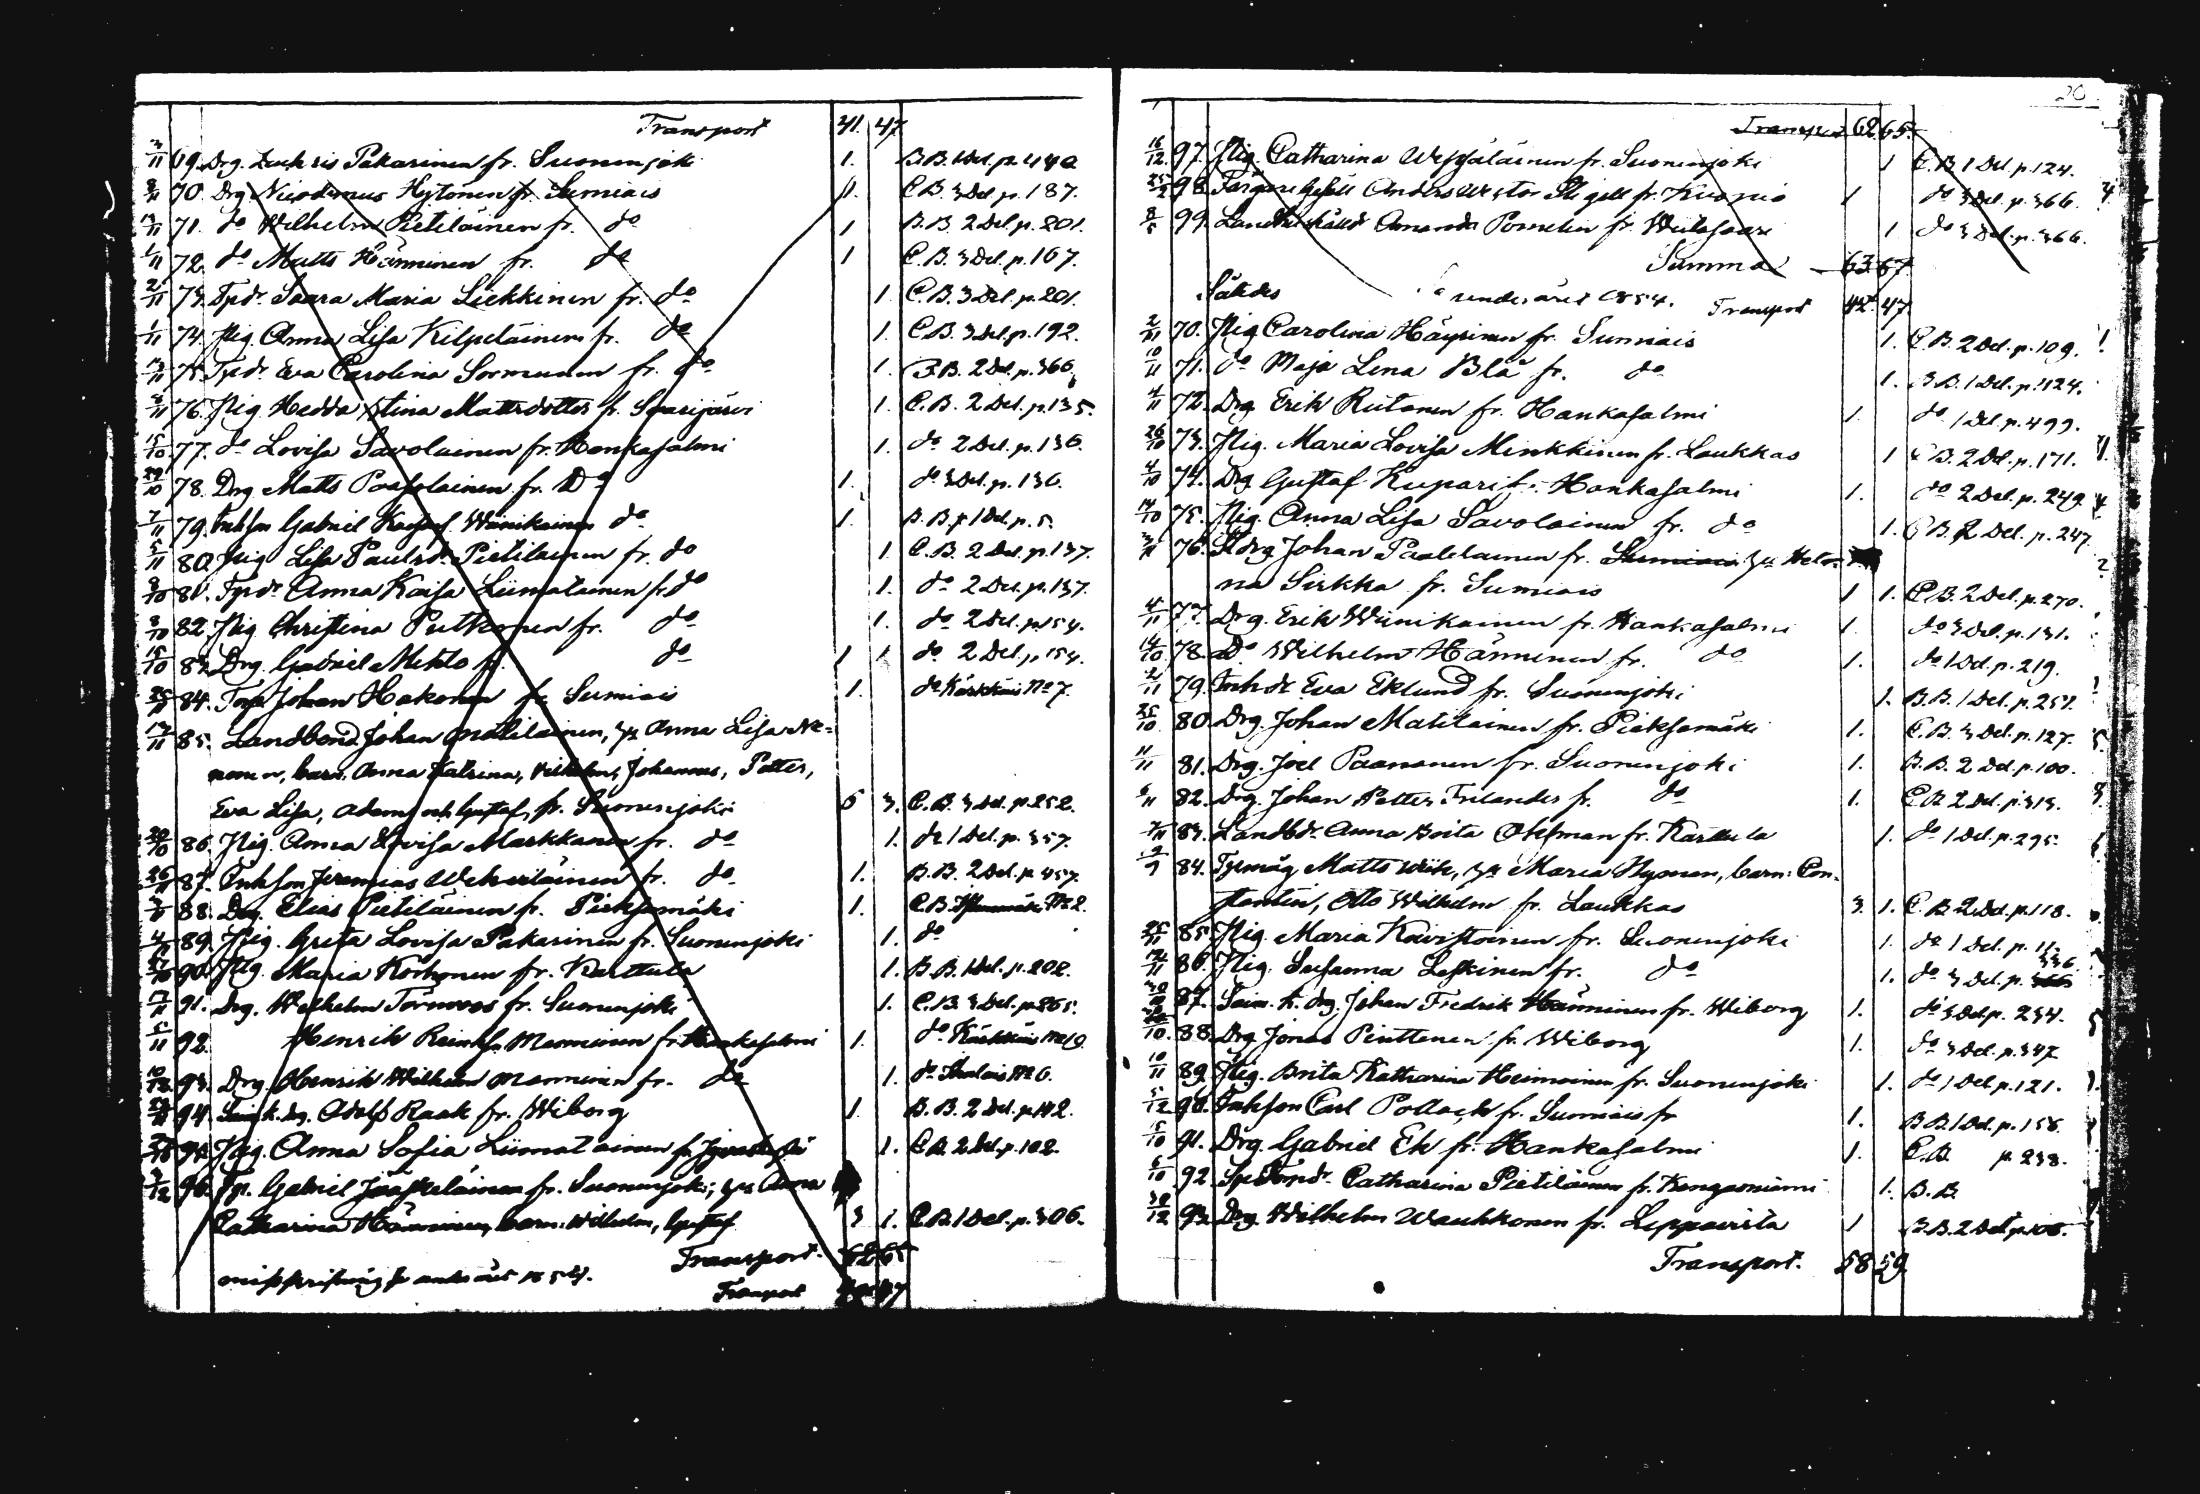 Transport 41. 47.
3/11 69. Drg. Zachris Pakarinen fr. Suonenjoki 1. B.B. 1 Del. p. 440
70. Drg Nicodemus Hytönen fr. Sumiais 1. C.B. 3 Del. p. 187.
71. do Wilhelm Pietiläinen fr. do 1 B.B. 2 Del. p. 201.
1/11 72. do Matts Hänninen fr. do 1 C.B. 3 Del. p. 167.
2/11 73. Tpdr. Saara Maria Liekkinen fr. do 1. C.B. 3 Del. p. 201.
1/11 74. Pig. Anna Lisa Kilpeläinen fr. do 1. C.B. 3 Del. p. 192.
75. Tpdr. Eva Carolina Sormunen fr. do 1. B.B. 2 Del. p. 366.
76. Pig. Hedda Stina Mattsdotter fr. Saarijärvi 1. C.B. 2 Del. p. 135.
15/10 77. do Lovisa Savolainen fr. Hankasalmi 1. do 2 Del. p. 136.
29/10 78. Drg Matts Poasolainen fr. Do 1. do 3 Del. p. 136.
7/11 79. Inhson Gabriel Wänikainen do 1. B.B. 1 Del. p. 5.
5/11 80. Pig Lisa Paulsd. Pietilainen fr. do 1. C.B. 2 Del. p. 137.
81. Tpdr. Anna Kaisa Liimatainen fr do 1. do 2 Del. p. 137.
82. Pig Christina Putkonen fr. do 1. do 2 Del. p. 154.
15/10 83. Drg. Gabriel Mehto fr. do 1 1 do 2 Del. p. 154.
84. Torp Johan Hakonen fr. Sumiais 1. do Kärkkäis No 7.
85. Landbond Johan Matilainen, hu Anna Lisa Ne-
nonen, barn. Anna Katrina, Wilhelm, Johannes, Petter,
Eva Lisa, Adam och Gustaf, fr. Suonenjoki 6 3. C.B. 3 Del. p. 252.
20/10 86. Pig. Anna Lovisa Markkanen fr. do 1. do 1 Del. p. 357.
87. Inhson Jeremias Wehviläinen fr. do 1. B.B. 2 Del. p. 457.
88. Drg. Elias Pietiläinen fr. Pieksämäki 1. C.B. No 2.
89. Pig. Greta Lovisa Pakarinen fr. Suonenjoki 1. do
90. Pig. Maria Korhonen fr. Karttula 1. B.B. 1 Del. p. 202.
91. Drg. Wilhelm Törnroos fr. Suonenjoki 1. C.B. 3 Del. p. 265.
5/11 92. Henrik Manninen fr. Hankasalmi 1. do
93. Drg. Henrik Wilhelm Manninen fr. do 1. do No 6.
94. Adolf Raak fr. Wiborg 1. B.B. 2 Del. p. 142.
95. Pig. Anna Sofia Liimatainen fr. Jyväskylä 1. C.B. 2 Del. p. 102.
96. Tp. Gabriel Jääskeläinen fr. Suonenjoki; hu Anna
Catharina Hänninen, barn: Wilhelm, Gustaf 3 1. C.B. 1 Del. p. 306.
Transport. 62 65
misskrifning se andra året 1854.
Transport 42 47
Transport 62 65.
16/12 97. Pig. Catharina Weijäläinen fr. Suonenjoki 1 C.B. 1 Del p. 124.
98. Färgare Gesäll Anders Wictor fr. Kuopio 1 do 3 Del. p. 366.
99. Amanda Pomelin fr. Wiitasaari 1 do 3 Del. p. 366.
Summa 63 67
Således under året 1854. Transport 42. 47
70. Pig Carolina Häyrinen fr. Sumiais 1. C.B. 2 Del. p. 109.
10/11 71. do Maja Lena Blå fr. do 1. B.B. 1 Del. p. 1124.
4/11 72. Drg. Erik Riitanen fr. Hankasalmi 1. do 1 Del. p. 499.
26/10 73. Pig. Maria Lovisa Minkkinen fr. Laukkas 1 C.B. 2 Del. p. 171.
4/10 74. Drg Gustaf Kupari fr. Hankasalmi 1. do 2 Del. p. 249
14/10 75. Pig. Anna Lisa Savolainen fr. do 1. C.B. 2 Del. p. 247.
76. Johan Paalelainen fr. Sumiais hu Hele-
na Sirkka fr. Sumiais 1 1. C.B. 2 Del. p. 270.
4/11 77. Drg. Erik Wänikainen fr. Hankasalmi 1. do 3 Del. p. 131.
14/10 78. Do Wilhelm Hänninen fr. do 1. do 1 Del. p. 219.
2/11 79. Inhdr Eva Eklund fr. Suonenjoki 1. B.B. 1 Del. p. 257.
25/10 80. Drg. Johan Matilainen fr. Pieksämäki 1. C.B. 3 Del. p. 127.
11/11 81. Drg. Joel Paananen fr. Suonenjoki 1. B.B. 2 Del. p. 100.
82. Drg. Johan Petter Frilander fr. do 1. C.B. 2 Del. p. 313.
83. Landbdr. Anna Brita Ohlman fr. Karttula 1. do 1 Del. p. 295.
84. Matts Wiik, hu Maria Nyman, barn: Con-
stantin, Otto Wilhelm fr. Laukkas 3. 1. C.B. 2 Del. p. 118.
85. Pig. Maria Koivistoinen fr. Suonenjoki 1. do 1 Del. p. 11.
86. Pig. Susanna Leskinen fr. do 1. do 3 Del. p. 336
87. Johan Fredrik Hänninen fr. Wiborg 1. do 3 Del p. 234.
88. Drg Jonas Penttinen fr. Wiborg 1. do 3 Del. p. 347
10/11 89. Pig. Brita Katharina Heimoinen fr. Suonenjoki 1. do 1 Del. p. 121.
5/12 90. Inhson Carl Pollack fr. Sumiais fr 1. B.B. 1 Del. p. 156.
15/10 91. Drg. Gabriel Ek fr. Hankasalmi 1. C.B. p. 238.
92. Catharina Pietiläinen fr. Kangasniemi 1. B.B.
93. Drg. Wilhelm Wauhkonen fr. Leppävirta 1 B.B. 2 Del. p. 106.
Transport. 58 59.